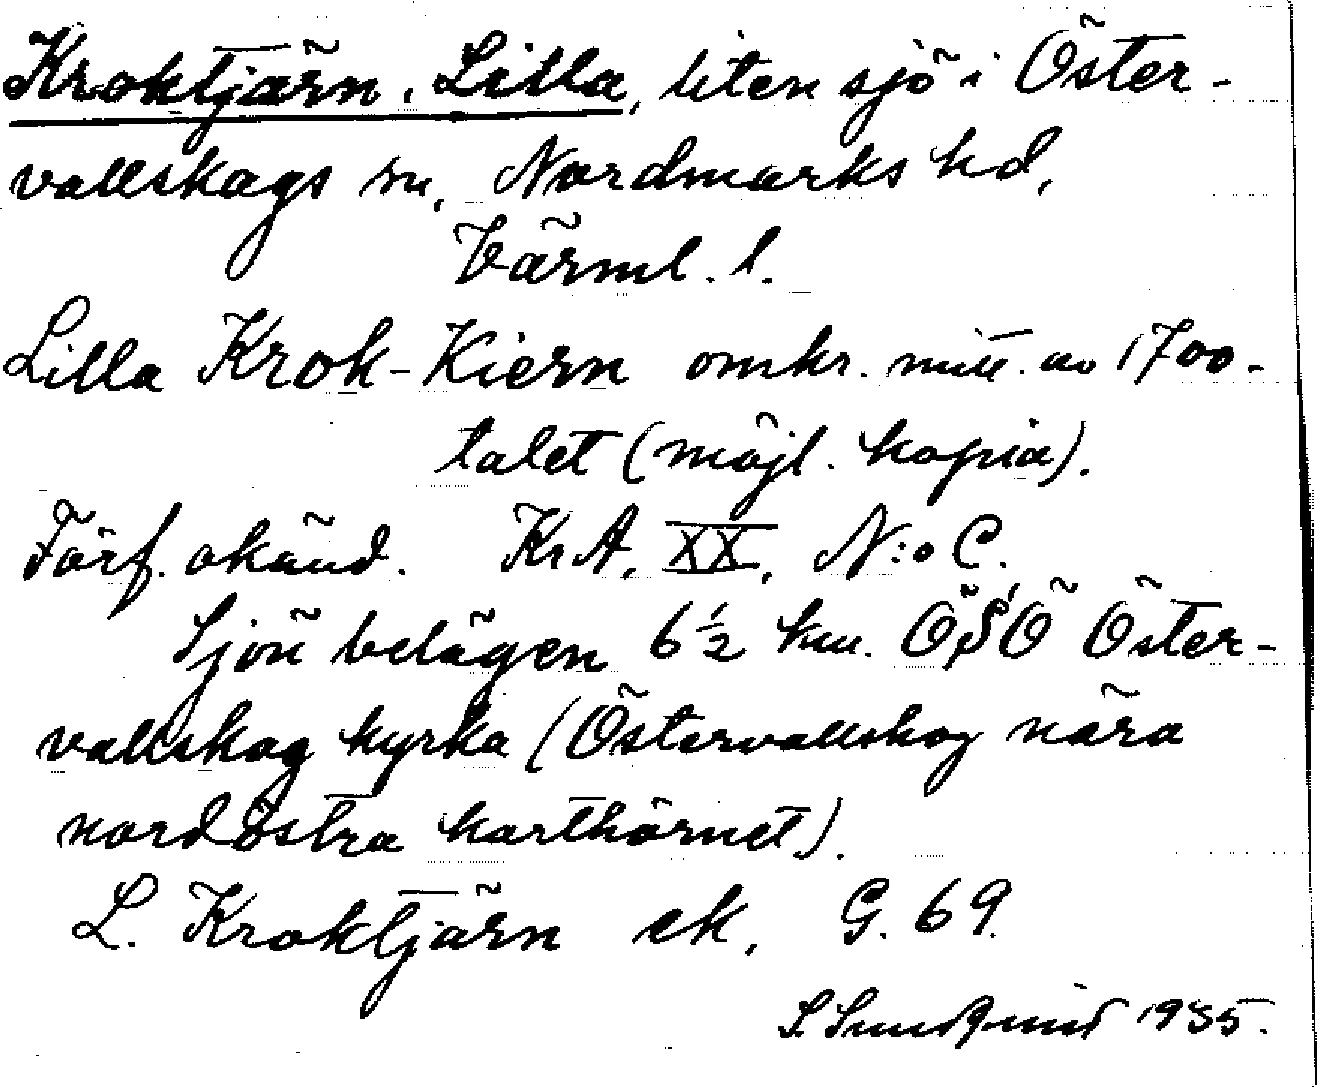 Kroktjärn, Lilla, liten sjö i Öster-
vallskogs sn, Nordmarks hd,
Värml. l.
Lilla Krok-Kiern omkr. mitt. av 1700-
talet (möjl. kopia).
Förf. okänd. KrA, XX, N:o C.
Sjön belägen 6½ km. ÖSÖ Öster-
vallskog kyrka (Östervallskog nära
nordöstra karthörnet).
L. Kroktjärn ek, G. 69.
S. Sundqvist 1935.